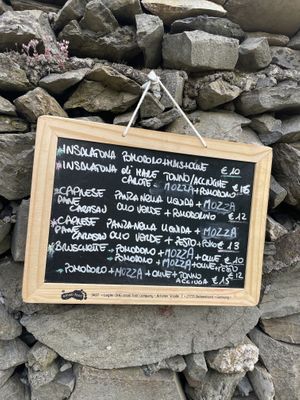 INSALATONA POMODORO+
€ 10
INSALATONA di MARE TONNO/ACCIUGHE
CAROTE + MOZZA + POMODORO
CAPRESE PANZANELLA LIGURIA + MOZZA
PANE CARASAU OLIO VERDE + POMODORINO € 12
CAPRESE PANZANELLA LIGURIA + MOZZA
PANE CARASAU OLIO VERDE + PESTO + POMO € 13
BRUSCHETTE + POMODORO + MOZZA + OLIVE € 10
POMODORO + MOZZA + OLIVE + PESTO € 12
POMODORO + MOZZA + OLIVE + TONNO
ACCIUGA € 15